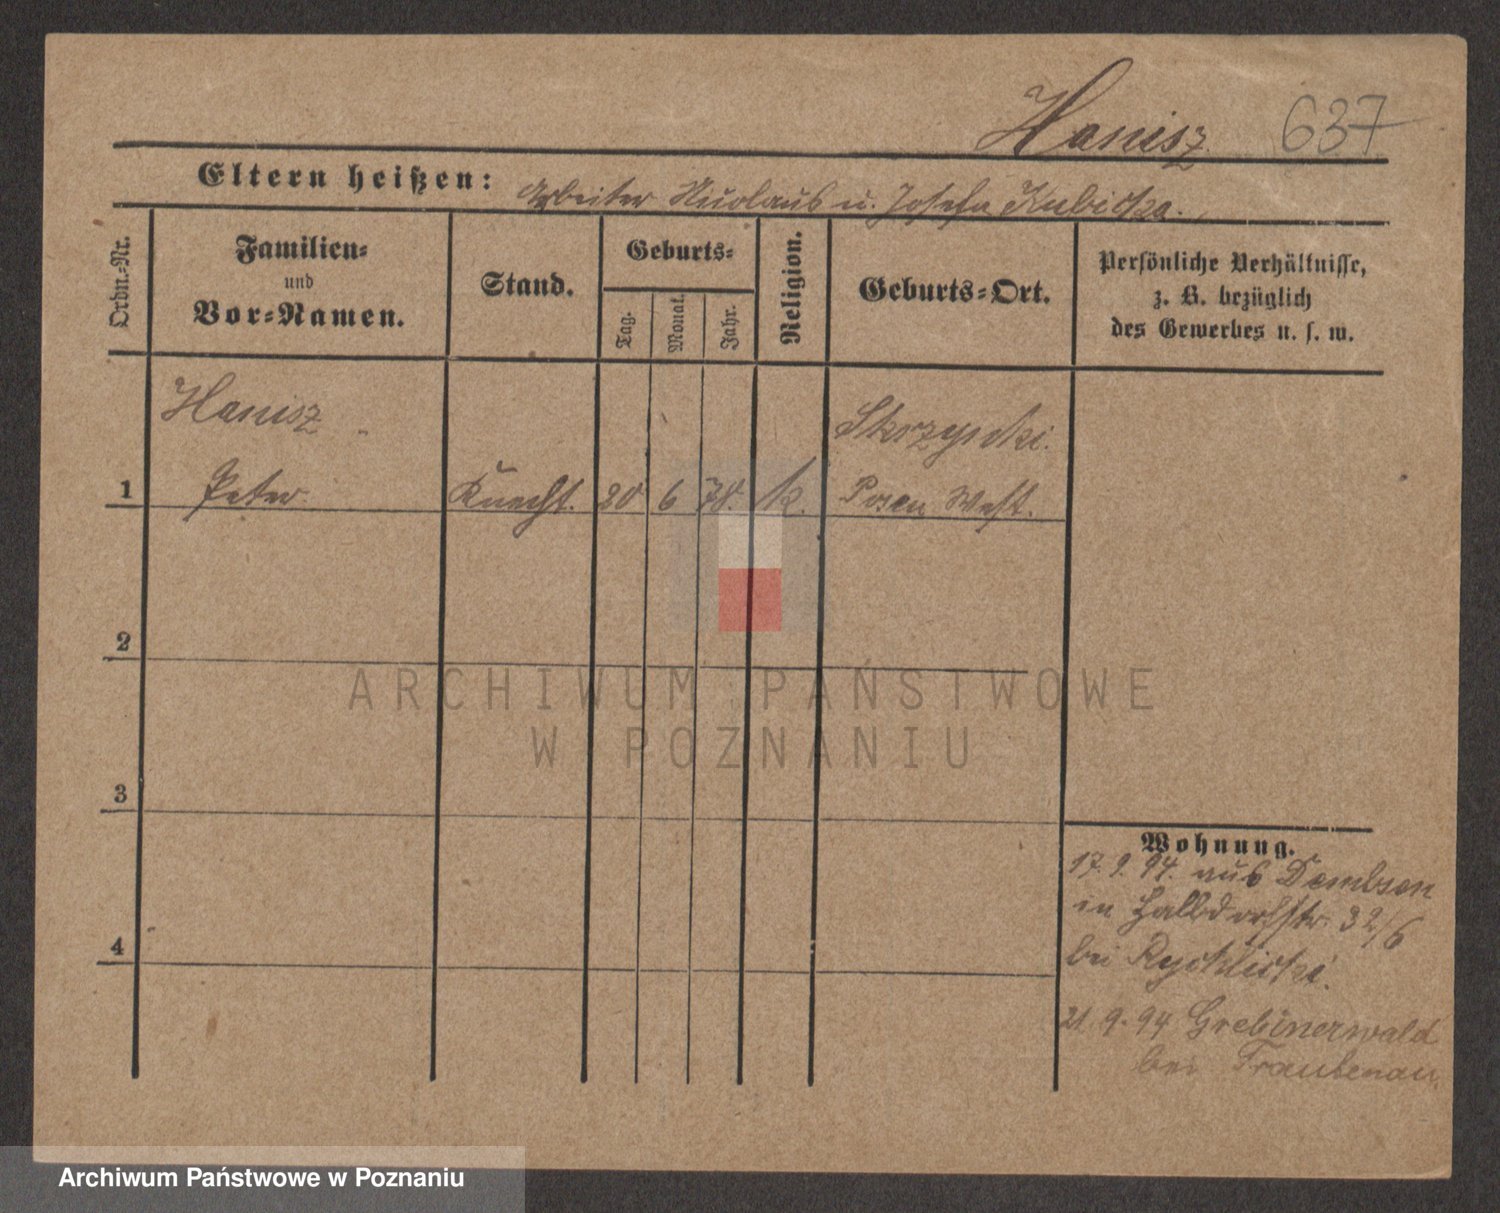 Hanisz 637
Eltern heißen: Arbeiter u. Josefa Kubicka.
Ordn.-Nr.
Familien-
und
Vor-Namen.
Stand.
Geburts-
Tag.
Monat.
Jahr.
Religion.
Geburts-Ort.
Persönliche Verhältnisse,
z. B. bezüglich
des Gewerbes u. s. w.
Hanisz
1 Peter Knecht. 20 6 78. k. Posen West.
2
3
4
Wohnung.
17. 9. 94. aus Dembsen
in Halbdorfstr. 32/6
bei Rychlicki.
21. 9. 94 Grebinerwald
bei
ARCHIWUM PAŃSTWOWE
W POZNANIU
Archiwum Państwowe w Poznaniu